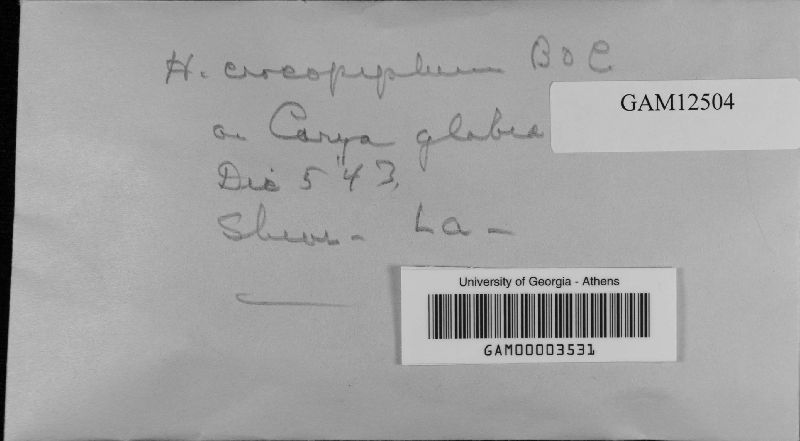 H. crocopeplum B & C
GAM12504
on Carya glabra
Dec 5 '43,
Shreve - La -
University of Georgia - Athens
GAM00003531